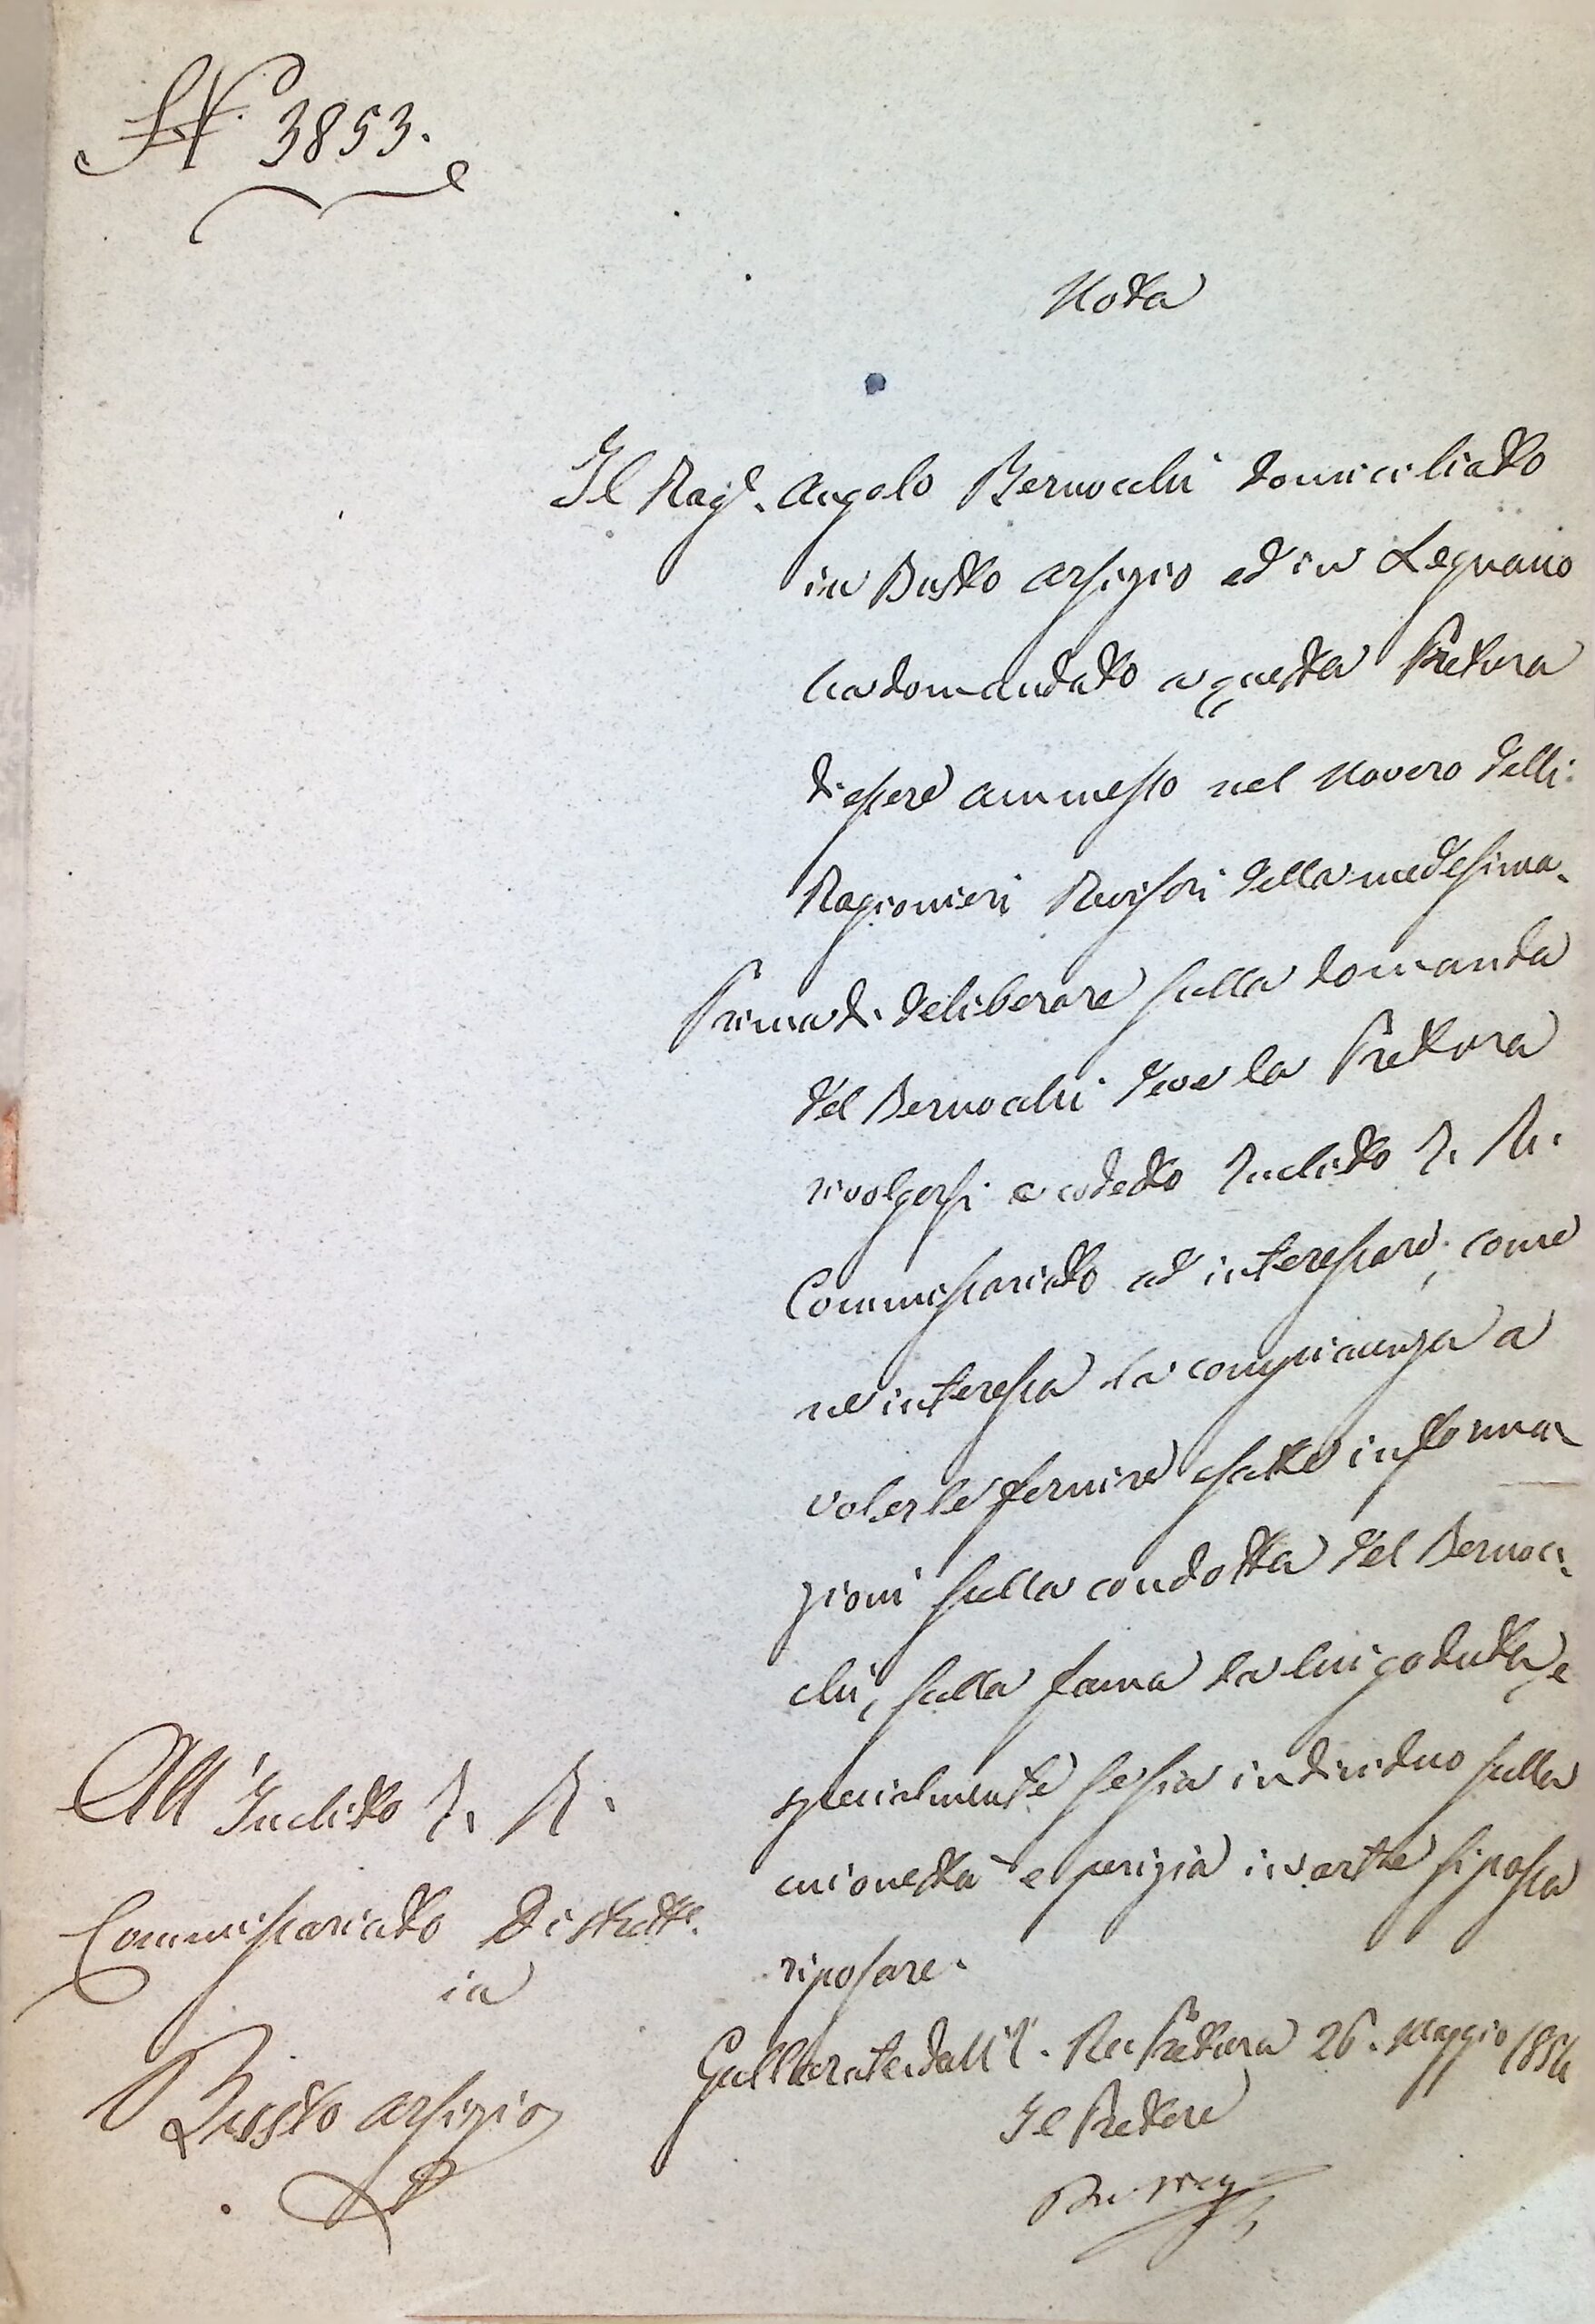 N.° 3853.
Nota
Il Rag.e Angelo Bernocchi domiciliato
in Busto Arsizio ed in Legnano
ha domandato a questa Pretura
di essere ammesso nel novero delli
Ragionieri Revisori della medesima.
Prima di deliberare sulla domanda
del Bernocchi deve la Pretura
rivolgersi a codesto Inclito I. R.
Commissariato ad interessare, come
ne interessa la compiacenza a
volerle fornire esatte informa-
zioni sulla condotta del Bernoc-
chi, sulla fama da lui goduta, e
specialmente se sia individuo sulla
cui onestà e perizia in arte si possa
riposare.
Gallarate dall'I. R. Pretura 26. Maggio 1854
Il Pretore
All'Inclito I. R.
Commissariato Distrett.e
in
Busto Arsizio